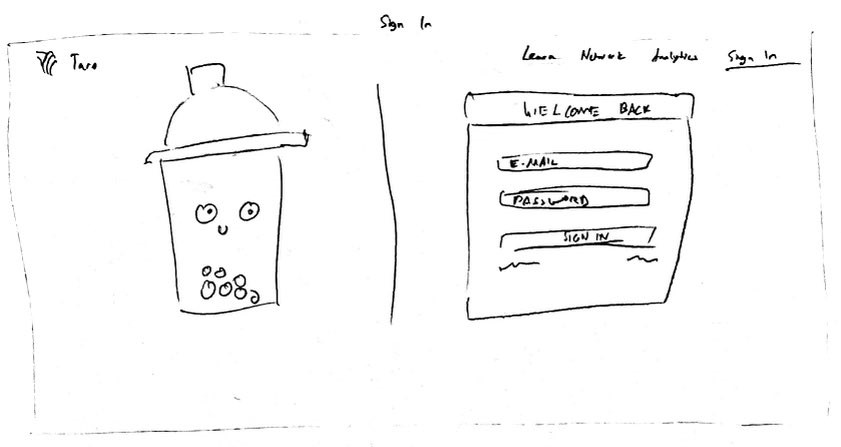 Sign In
Taro
Learn Network Analytics Sign In
WELCOME BACK
E-MAIL
PASSWORD
SIGN IN